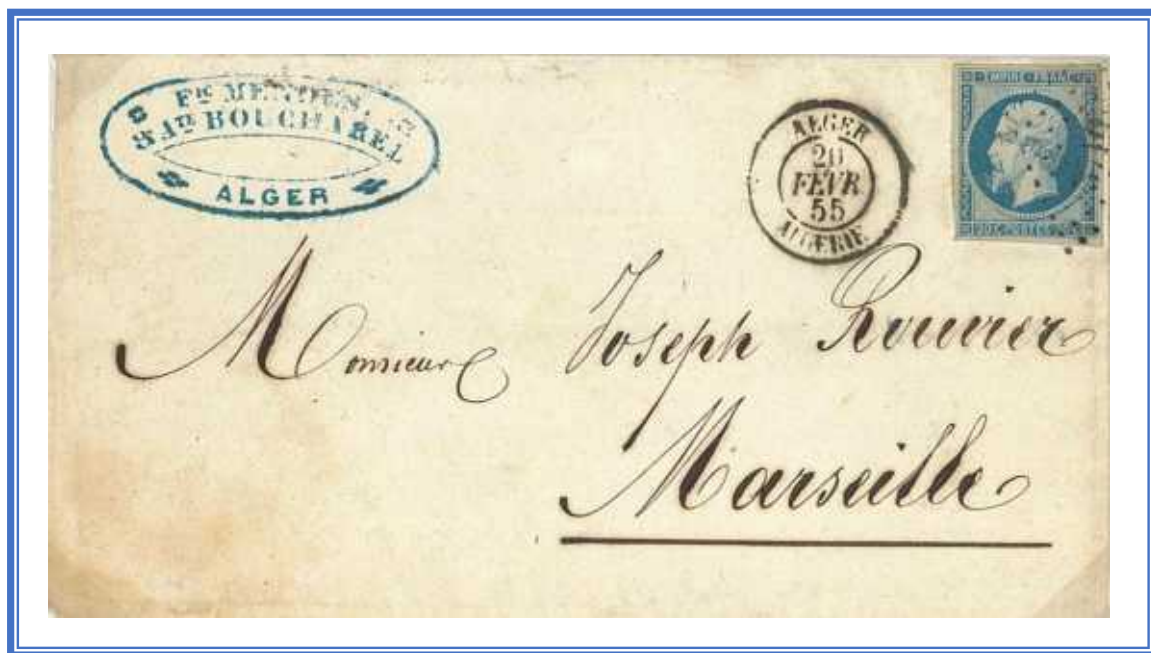 & Jn BOUCHAREL
ALGER
ALGER
20
FEVR
55
ALGERIE
EMPIRE FRANC
20 C. POSTES 20 C.
Monsieur Joseph Rouvier
Marseille